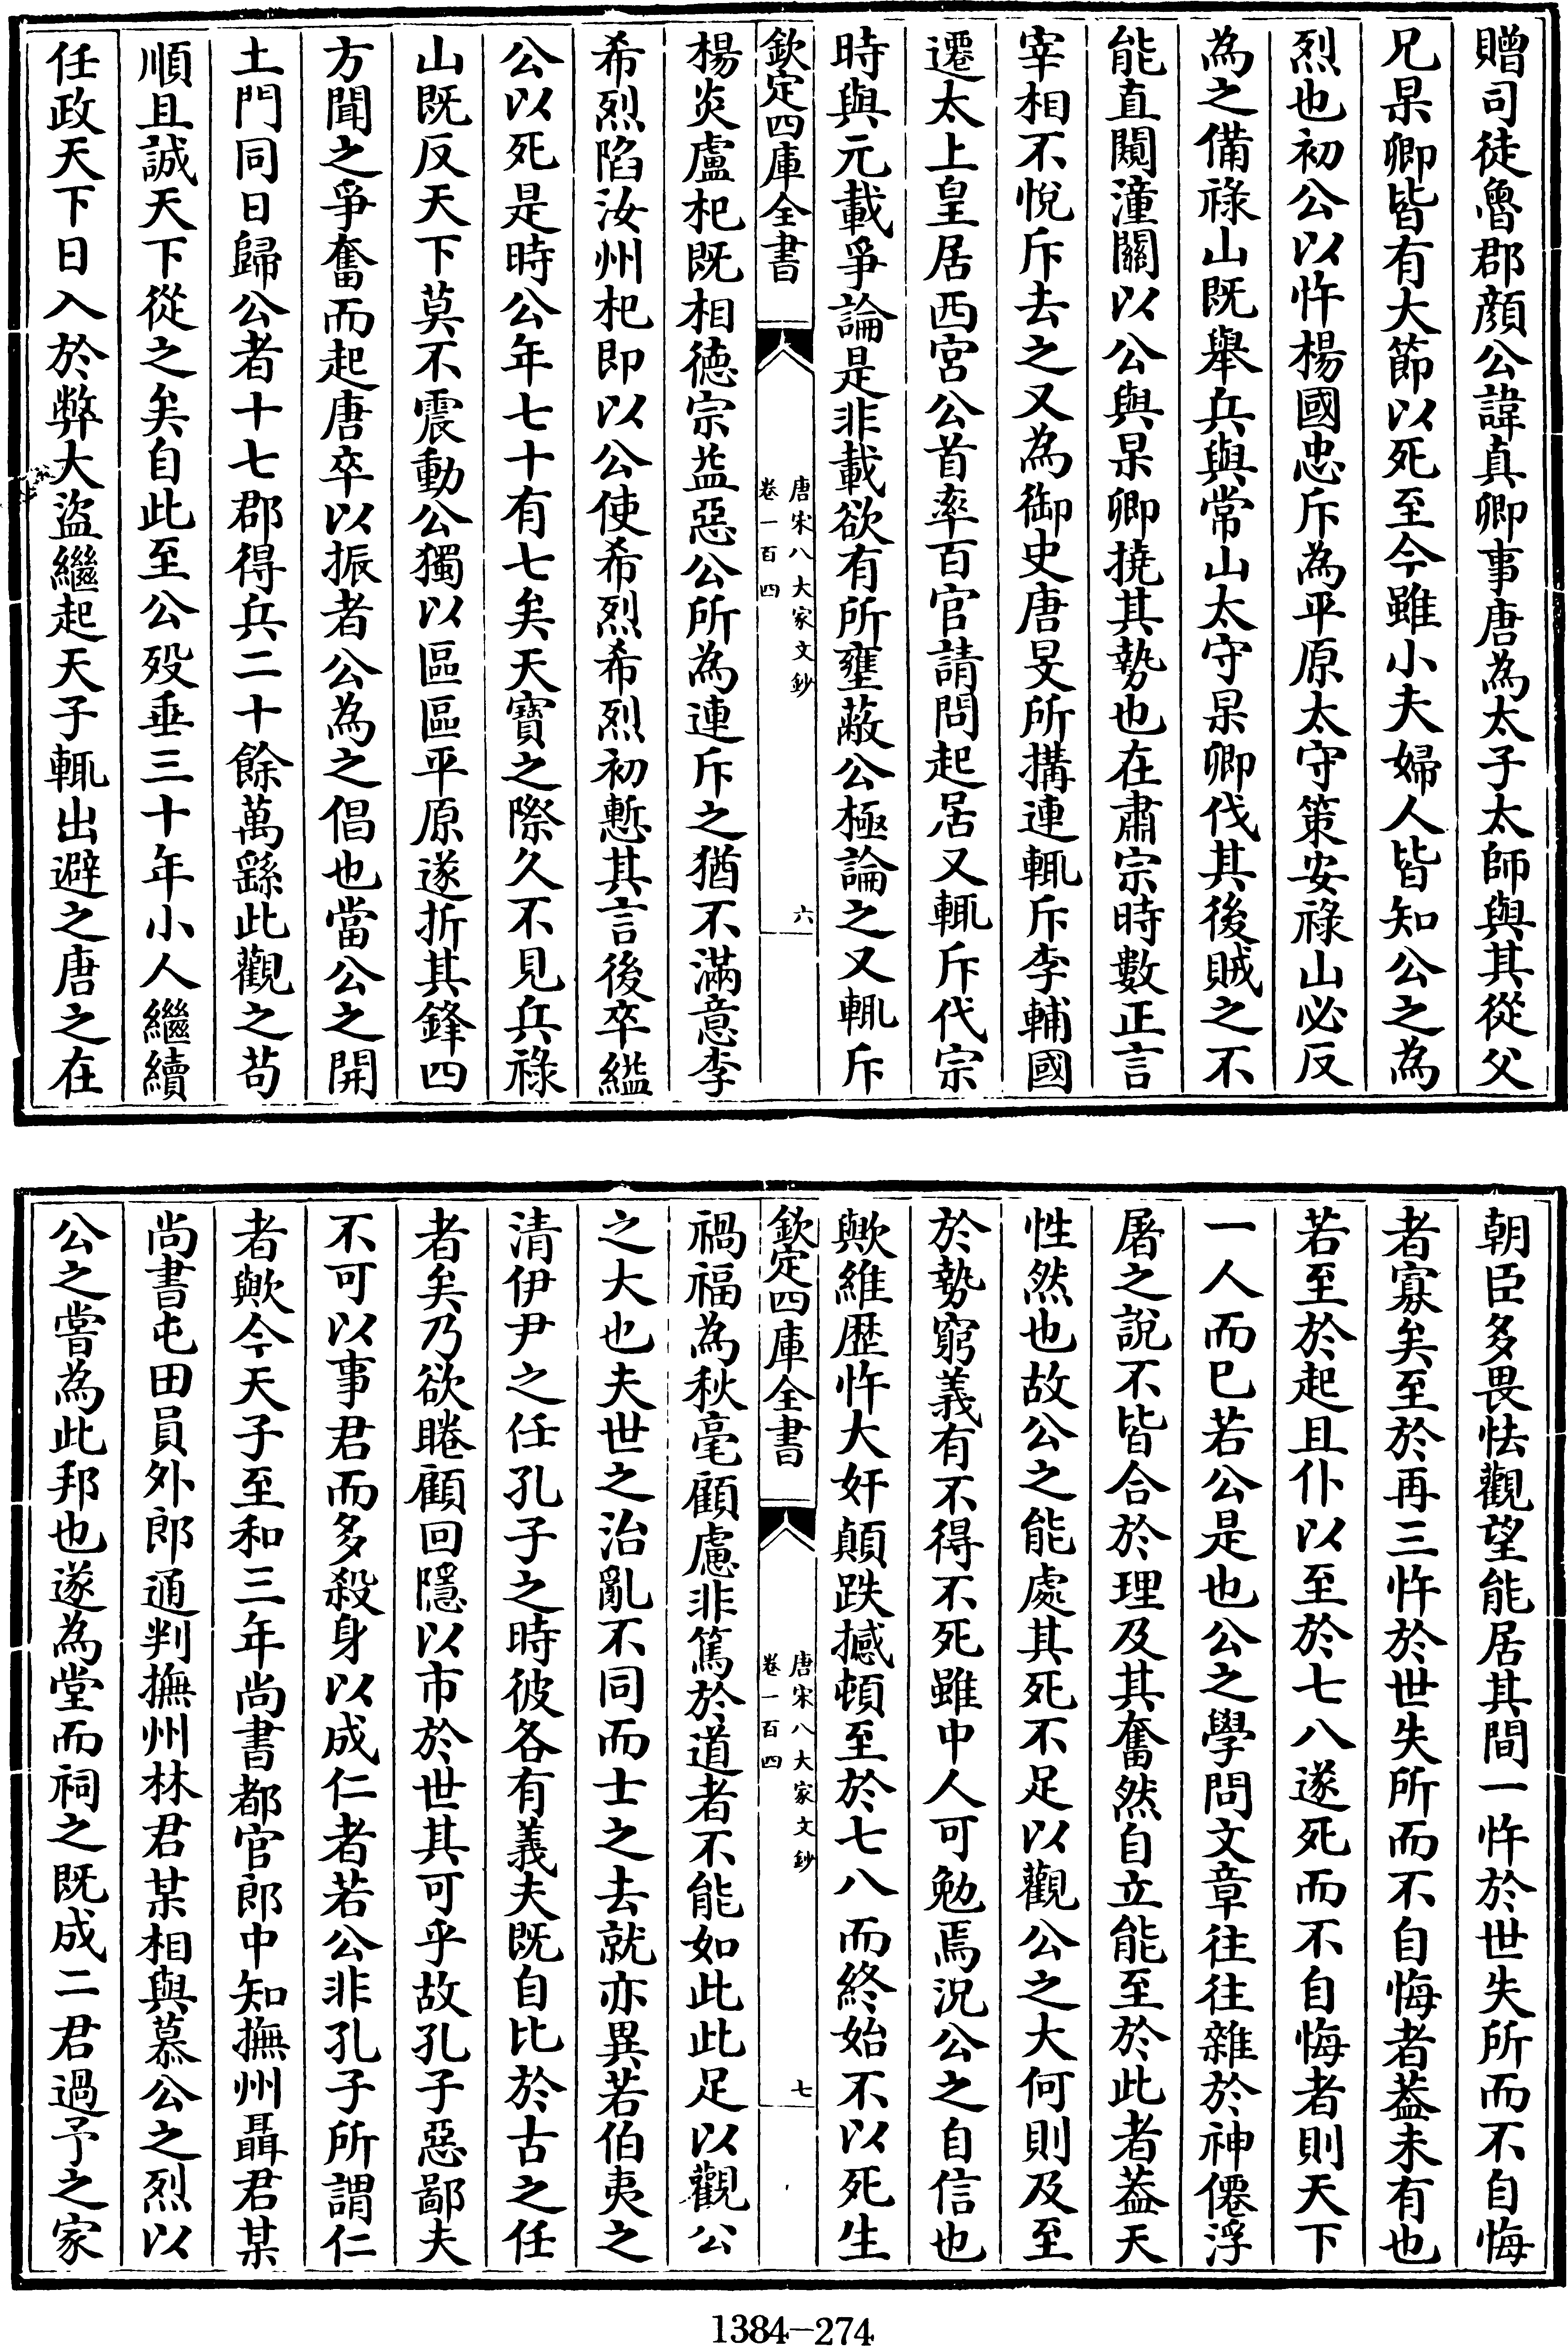 贈司徒魯郡顔公諱真卿事唐為太子太師與其從父
兄杲卿皆有大節以死至今雖小夫婦人皆知公之為
烈也初公以忤楊國忠斥為平原太守策安祿山必反
為之備祿山既舉兵與常山太守杲卿伐其後賊之不
能直闚潼關以公與杲卿撓其勢也在肅宗時數正言
宰相不悅斥去之又為御史唐旻所搆連輒斥李輔國
遷太上皇居西宮公首率百官請問起居又輒斥代宗
時與元載爭論是非載欲有所壅蔽公極論之又輒斥
欽定四庫全書
唐宋八大家文鈔
卷一百四
六
楊炎盧杞既相德宗葢惡公所為連斥之猶不滿意李
希烈陷汝州杞即以公使希烈希烈初慙其言後卒縊
公以死是時公年七十有七矣天寶之際久不見兵祿
山既反天下莫不震動公獨以區區平原遂折其鋒四
方聞之爭奮而起唐卒以振者公為之倡也當公之開
土門同日歸公者十七郡得兵二十餘萬繇此觀之茍
順且誠天下從之矣自此至公歿垂三十年小人繼續
任政天下日入於弊大盜繼起天子輒出避之唐之在
朝臣多畏怯觀望能居其間一忤於世失所而不自悔
者寡矣至於再三忤於世失所而不自悔者葢未有也
若至於起且仆以至於七八遂死而不自悔者則天下
一人而巳若公是也公之學問文章往往雜於神僊浮
屠之說不皆合於理及其奮然自立能至於此者葢天
性然也故公之能處其死不足以觀公之大何則及至
於勢窮義有不得不死雖中人可勉焉況公之自信也
歟維歴忤大奸顛跌撼頓至於七八而終始不以死生
欽定四庫全書
唐宋八大家文鈔
卷一百四
七
禍福為秋毫顧慮非篤於道者不能如此此足以觀公
之大也夫世之治亂不同而士之去就亦異若伯夷之
清伊尹之任孔子之時彼各有義夫既自比於古之任
者矣乃欲睠顧回隱以市於世其可乎故孔子惡鄙夫
不可以事君而多殺身以成仁者若公非孔子所謂仁
者歟今天子至和三年尚書都官郎中知撫州聶君某
尚書屯田員外郎通判撫州林君某相與慕公之烈以
公之嘗為此邦也遂為堂而祠之既成二君過予之家
1384-274